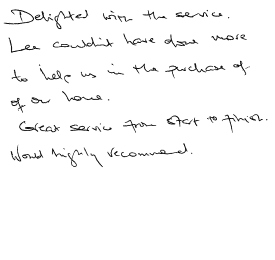 Delighted with the service.
Lee couldn't have done more
to help us in the purchase of
of our home.
Great service from start to finish.
Would highly recommend.